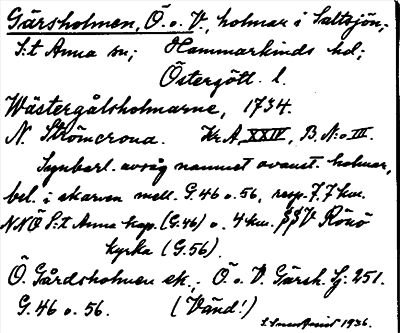 Gärsholmen, Ö. o. V., holmar i Saltsjön;
S:t Anna sn; Hammarkinds hd;
Östergötl. l.
Wästergålsholmarne, 1734.
N. Strömcrona. Kr. A. XXIV, B. N:o III.
Synbarl. avsåg namnet ovanst. holmar,
bel. i skarven mell. G.46 o. 56, resp. 7,7 km.
NNÖ S:t Anna kap. (G.46) o. 4 km. SSV Rönö
kyrka (G.56).
Ö. Gårdsholmen ek., Ö. o. V. Gärsh. Sj. 251.
G.46 o. 56. (Vänd!)
1936.